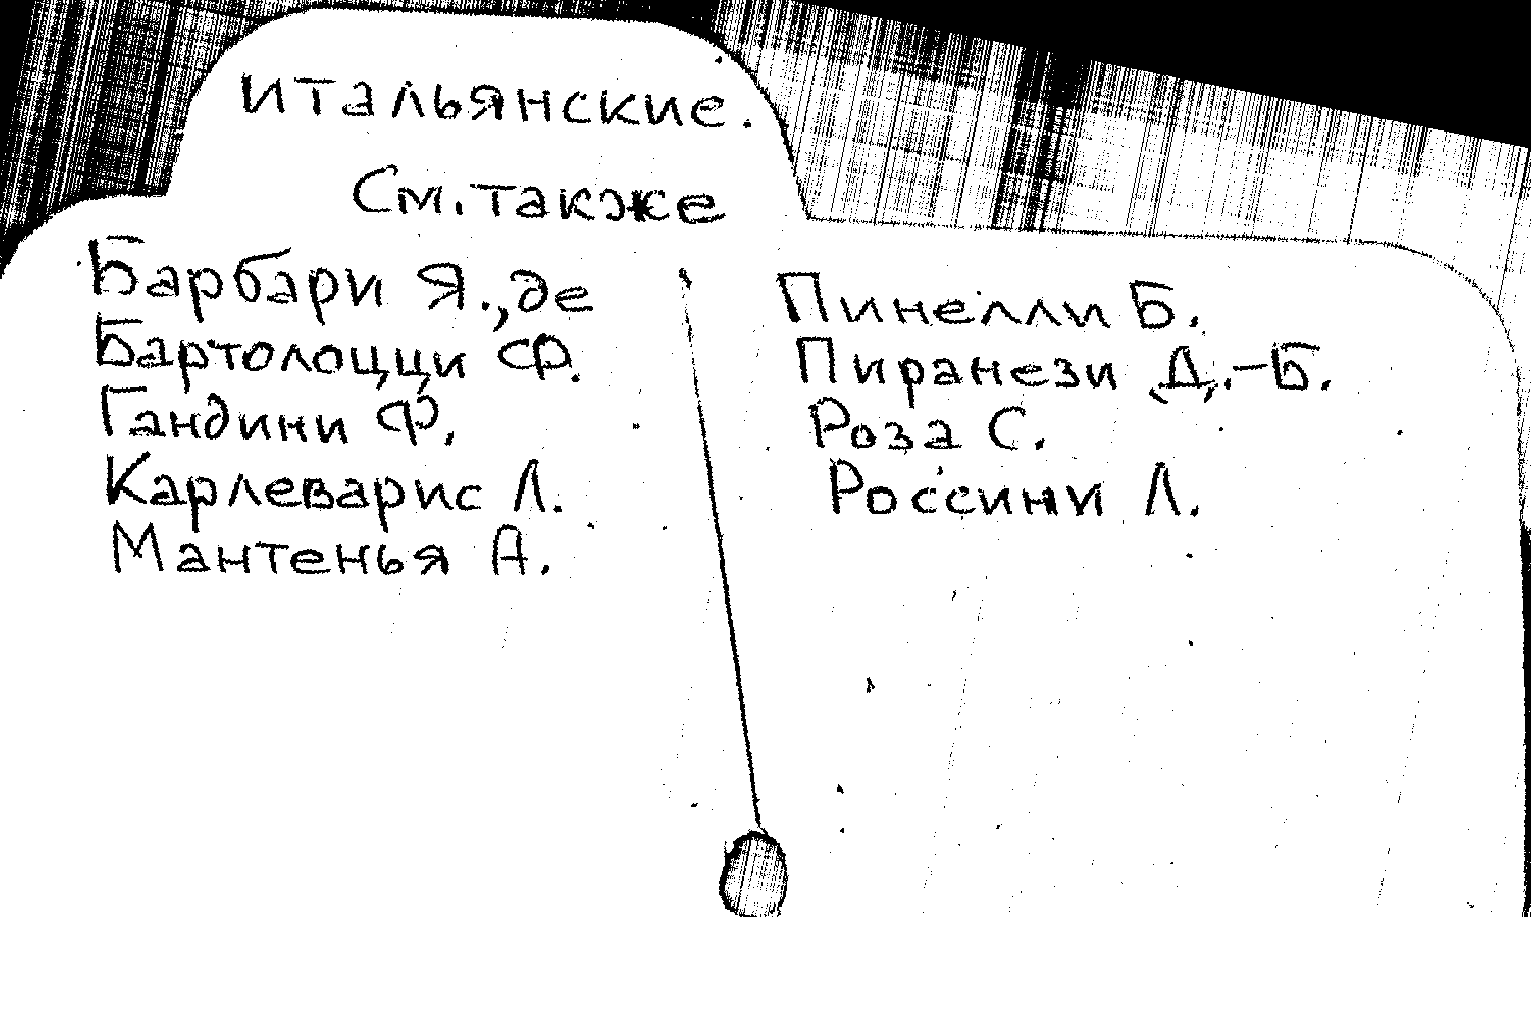 итальянские.
См. также
Барбари Я., де
Бартолоцци Ф.
Гандини Ф.
Карлеварис Л.
Мантенья А.
Пинелли Б.
Пиранези Д.-Б.
Роза С.
Россини Л.